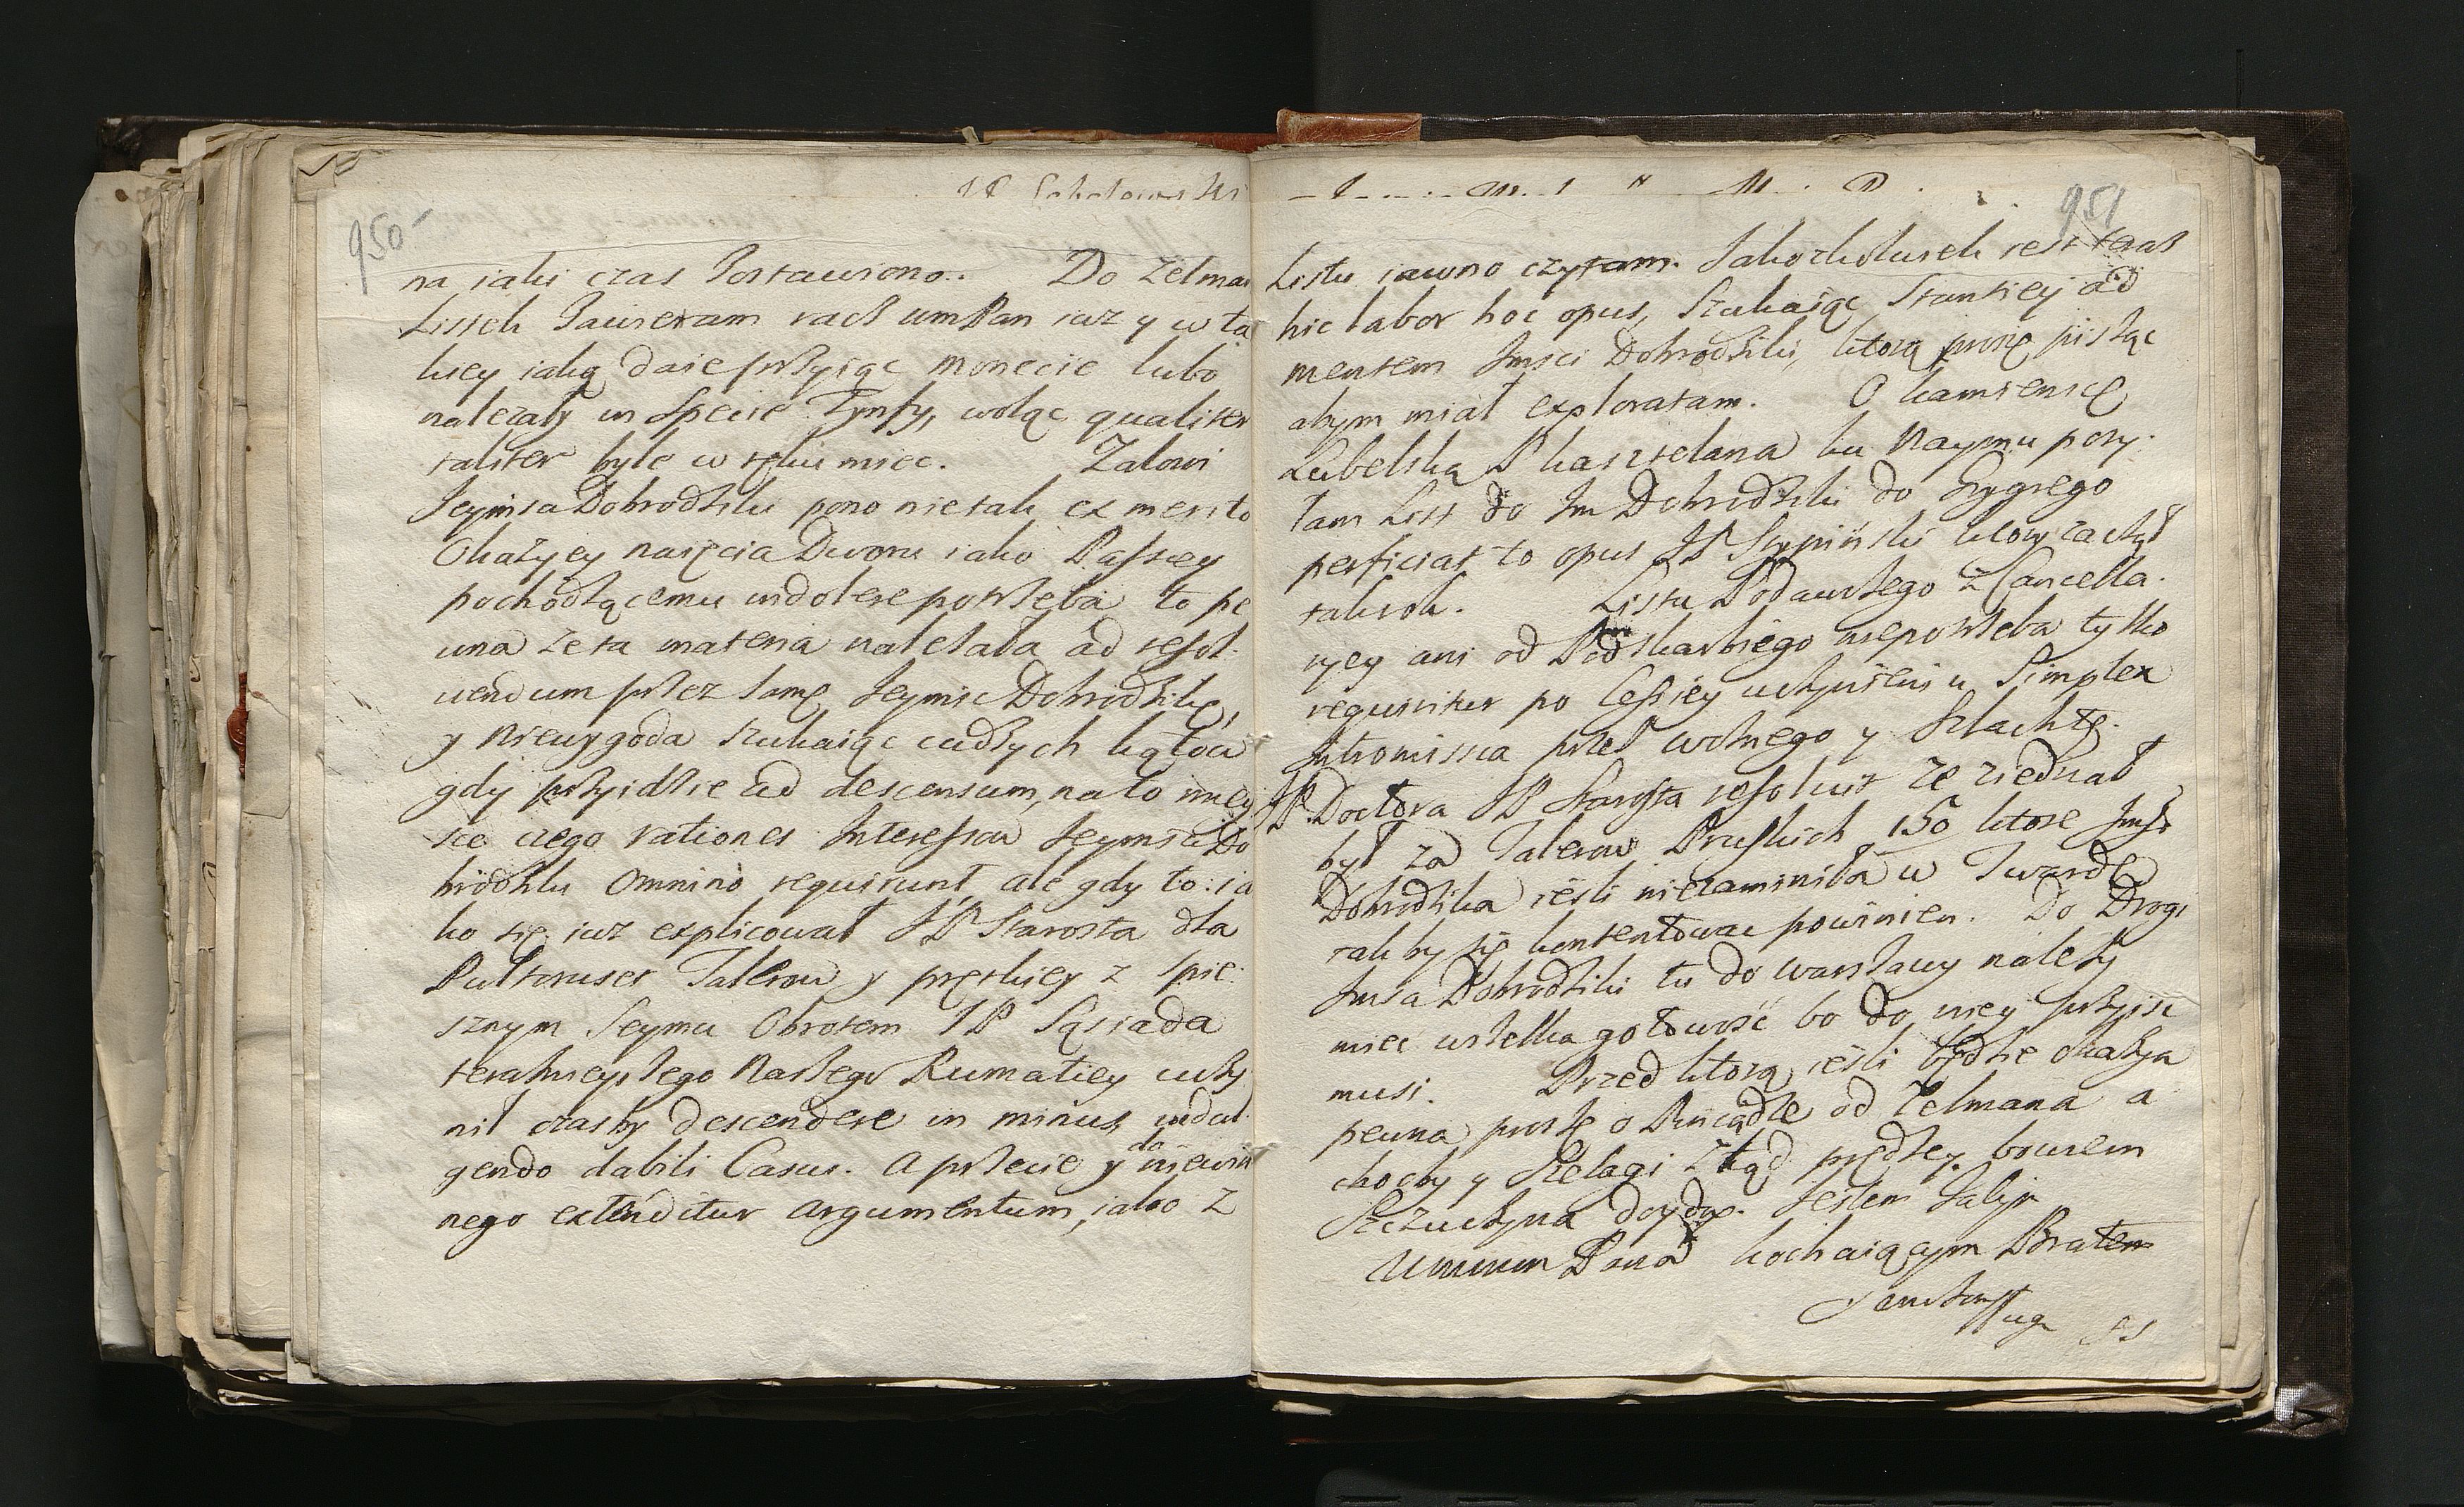 950
JP Sokołowski
na iaki czas Postawiono.. Do Zelma
Listek Zawieram racz wmPan iuz y w ta
kiey iaką daie przyiąc monecie lubo
nalezały in Specie Tynfy, woląc qualiter
taliter byle w ręku miec. Zalowi
Jeymsa Dobrodziki pono nie tak ex merito
Okazyey naięcia Dworu iako Passyey
pochodzącemu indolere potrzeba to pe
wna ze ta materia nalezała ad resol
vendum przez samę Jeymsc Dobrodzikę,
y niewygoda szukaiąc cudzych kątow
gdy przyidzie ad descensum, na to miey
sce czego rationes Interessow Jeymsci Do
brodziki Omninò requirunt, ale gdy to ia
ko się iuz explicował JP Starosta dla
Talerow y prętkiey z spie
sznym Seymu Obrotem JP Sąsiada
teraznieyszego Naszego Rumatiey uczy
nił czasby descendere in minus indul
gendo dabili Casui. A przecie y da niewin
nego extenditur argumentum, iako z
951
Listu iawno czytam. Jakozkolwiek iest teraz
hic labor hoc opus, szukaiąc Stantiey ad
mentem Jmsci Dobrodziki, ktorą proszę pisząc
abym miał exploratam. O kamienicę
Lubelską P Kasztelana ku Naymu posy
łam List do Jm Dobrodziki do Jego
perficiat to opus JP Stypiński ktory zaczął
takrok. Listu Podawczego z Cancella
ryey ani od Podskarbiego niepotrzeba tylko
requiritur po Cessiey uczynieniu Simplex
Intromissia przez woznego y Szlachtę.
JP. Doctora JP Starosta resolwit ze ziednał
był za Talerow Pruskich 150 ktore Jmść
Dobrodzika iesli niezamieniła w Twarde
takby się kontentowac powinien. Do Drogi
Jmsa Dobrodziki tu do Warszawy nalezy
miec wszelką gotowość bo do niey przyisc
musi. Przed ktorą iesli będzie okazya
pewna proszę o Pieniądze od Zelmana a
chocby y Szelagi ztąd prędzey bowiem
Szczuczyna doydą. Jestem zalym
Wmmm Pana kochaiącym Bratem
y sługą